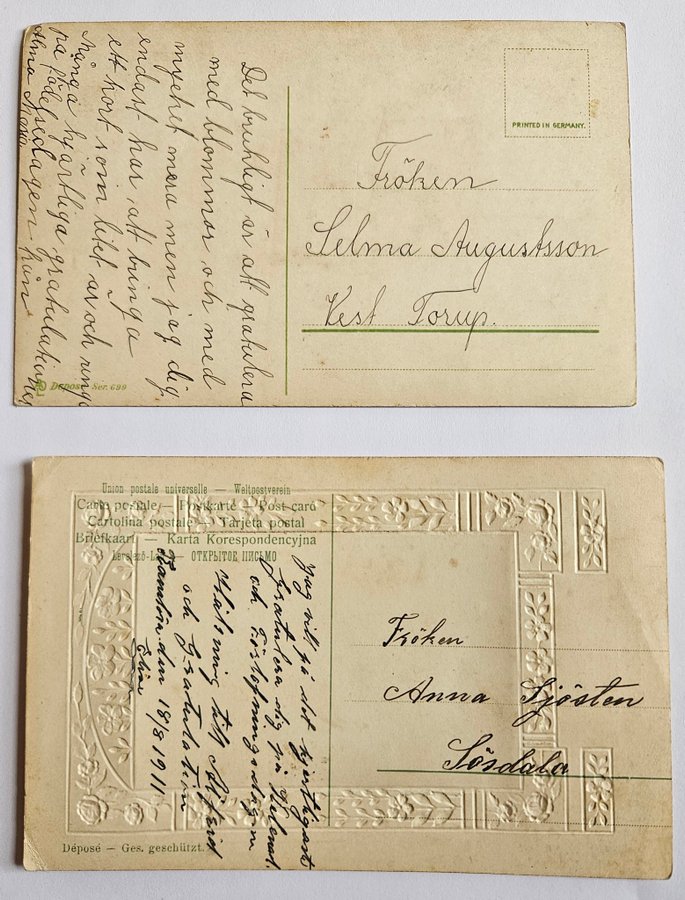 Det brukligt är att gratulera
med blommor och med
mycket mera men jag dig
endast har att bringa
ett kort som litet är och ringa
Många hjärtliga gratulationer
på födelsedagen från
Alma Maria
PRINTED IN GERMANY.
Fröken
Selma Augustsson
Vest Torup.
Déposé Ser. 689
Union postale universelle — Weltpostverein
Carte postale — Postkarte — Post card
Cartolina postale — Tarjeta postal
Briefkaart — Karta Korespondencyjna
Levelező-Lap — ОТКРЫТОЕ ПИСЬМО
Jag vill på det hjertligast
Gratulera dig på
och Förlofningsdagen
Helsning till
och Gratulation
den 18/8 1911
Elin
Fröken
Anna Sjösten
Sösdala
Déposé — Ges. geschützt.